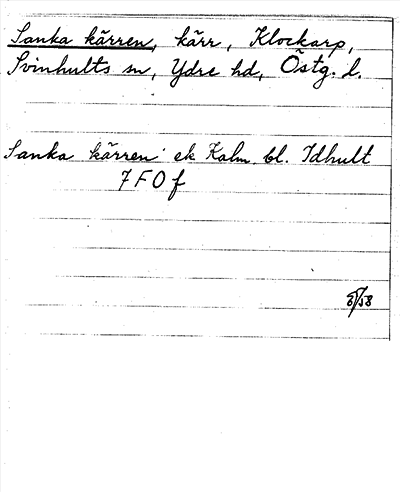 Sanka kärren, kärr, Klockarp,
Svinhults sn, Ydre hd, Östg. l.
Sanka kärren ek Kalm. bl. Idhult
7 F 0 f